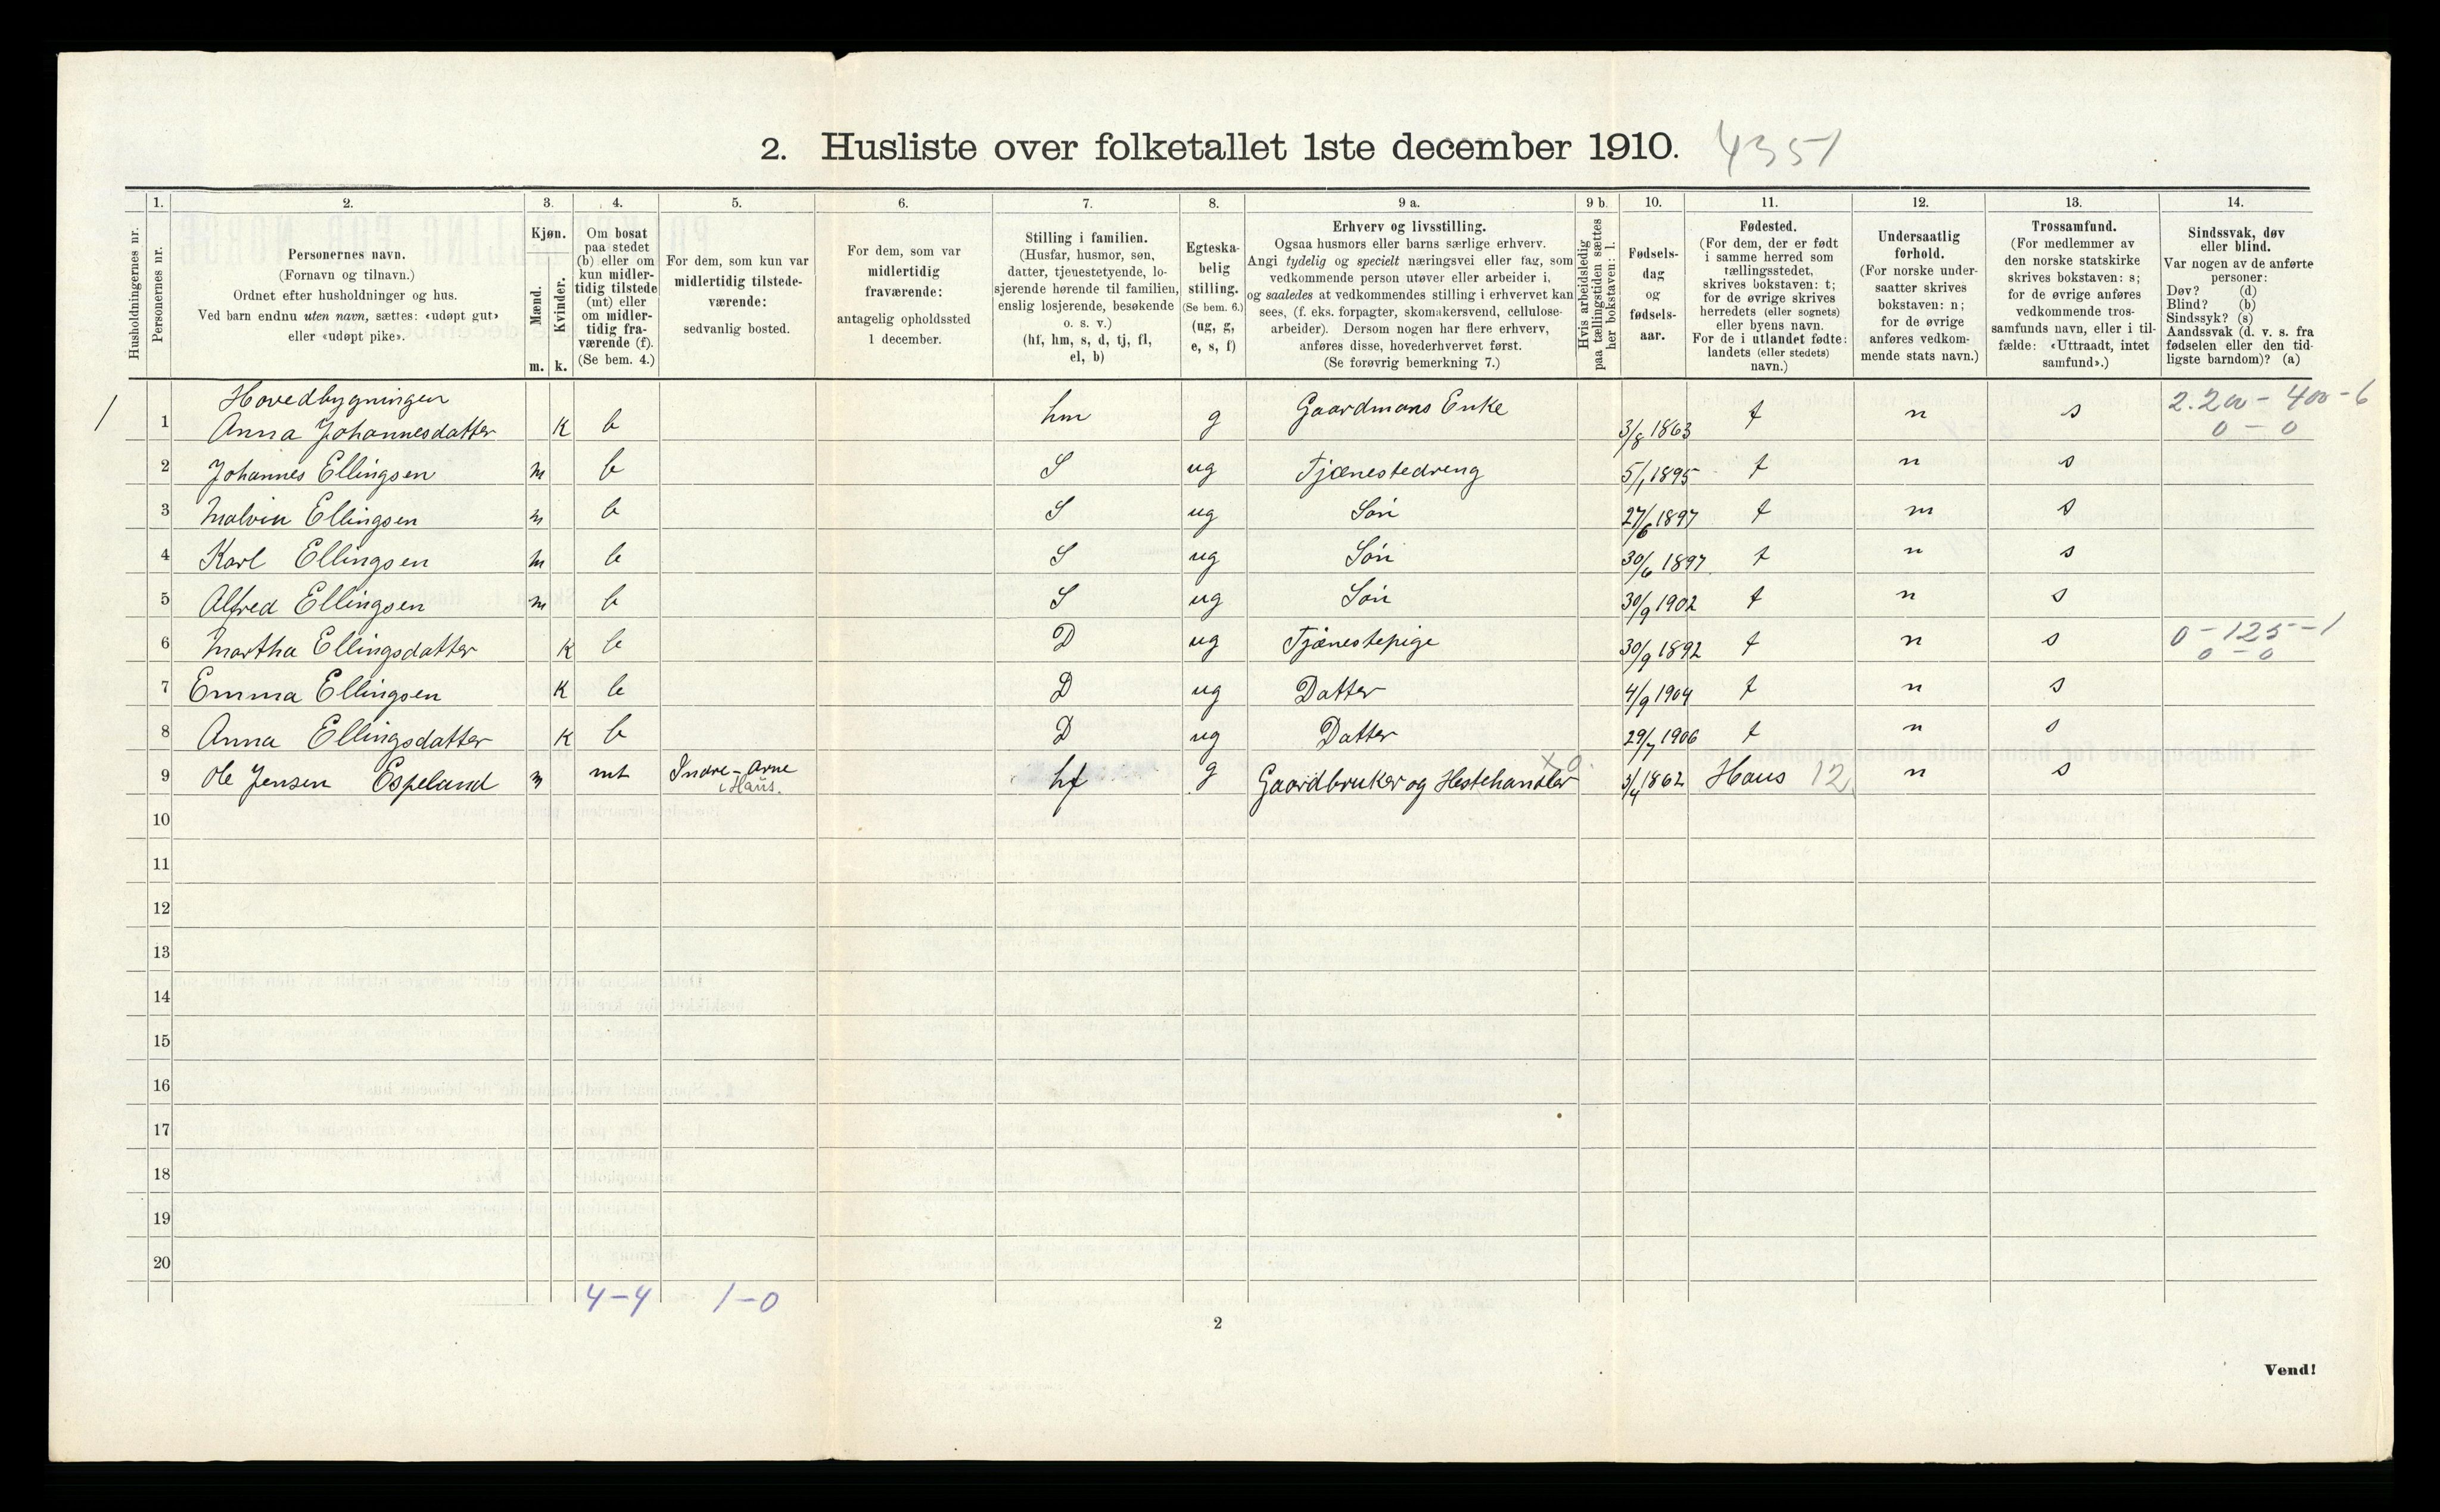 2. Husliste over folketallet 1ste december 1910. 4351
Husholdningernes nr.
1.
Personernes nr.
2.
Personernes navn.
(Fornavn og tilnavn.)
Ordnet efter husholdninger og hus.
Ved barn endnu uten navn, sættes: «udøpt gut»
eller «udøpt pike».
3.
Kjøn.
Mænd.
Kvinder.
m. k.
4.
Om bosat
paa stedet
(b) eller om
kun midler-
tidig tilstede
(mt) eller
om midler-
tidig fra-
værende (f).
(Se bem. 4.)
5.
For dem, som kun var
midlertidig tilstede-
værende:
sedvanlig bosted.
6.
For dem, som var
midlertidig
fraværende:
antagelig opholdssted
1 december.
7.
Stilling i familien.
(Husfar, husmor, søn,
datter, tjenestetyende, lo-
sjerende hørende til familien,
enslig losjerende, besøkende
o. s. v.)
(hf, hm, s, d, tj, fl,
el, b)
8.
Egteska-
belig
stilling.
(Se bem. 6.)
(ug, g,
e, s, f)
9 a.
Erhverv og livsstilling.
Ogsaa husmors eller barns særlige erhverv.
Angi tydelig og specielt næringsvei eller fag, som
vedkommende person utøver eller arbeider i,
og saaledes at vedkommendes stilling i erhvervet kan
sees, (f. eks. forpagter, skomakersvend, cellulose-
arbeider). Dersom nogen har flere erhverv,
anføres disse, hovederhvervet først.
(Se forøvrig bemerkning 7.)
9 b.
Hvis arbeidsledig
paa tællingstiden sættes
her bokstaven: l.
10.
Fødsels-
dag
og
fødsels-
aar.
11.
Fødested.
(For dem, der er født
i samme herred som
tællingsstedet,
skrives bokstaven: t;
for de øvrige skrives
herredets (eller sognets)
eller byens navn.
For de i utlandet fødte:
landets (eller stedets)
navn.)
12.
Undersaatlig
forhold.
(For norske under-
saatter skrives
bokstaven: n;
for de øvrige
anføres vedkom-
mende stats navn.)
13.
Trossamfund.
(For medlemmer av
den norske statskirke
skrives bokstaven: s;
for de øvrige anføres
vedkommende tros-
samfunds navn, eller i til-
fælde: «Uttraadt, intet
samfund».)
14.
Sindssvak, døv
eller blind.
Var nogen av de anførte
personer:
Døv? (d)
Blind? (b)
Sindssyk? (s)
Aandssvak (d. v. s. fra
fødselen eller den tid-
ligste barndom)? (a)
Hovedbygningen
1 1 Anna Johannesdatter K b hm g Gaardmans Enke 3/8 1863 t n s 2.200 - 400 - 6
0 - 0
2 Johannes Ellingsen m b S ug Tjænestedreng 5/1 1895 t n s
3 Malvin Ellingsen m b S ug Søn 27/6 1897 t n s
4 Karl Ellingsen m b S ug Søn 30/6 1897 t n s
5 Alfred Ellingsen m b S ug Søn 30/9 1902 t n s
6 Martha Ellingsdatter K b D ug Tjænestepige 30/9 1892 t n s 0 - 125 - 1
0 - 0
7 Emma Ellingsen K b D ug Datter 4/9 1904 t n s
8 Anna Ellingsdatter K b D ug Datter 29/7 1906 t n s
9 Ole Jensen Espeland m mt Indre-Arne i Haus. hf g Gaardbruker og Hestehandler x 0. 3/4 1862 Haus 12. n s
10
11
12
13
14
15
16
17
18
19
20
4-4 1-0
2
Vend!